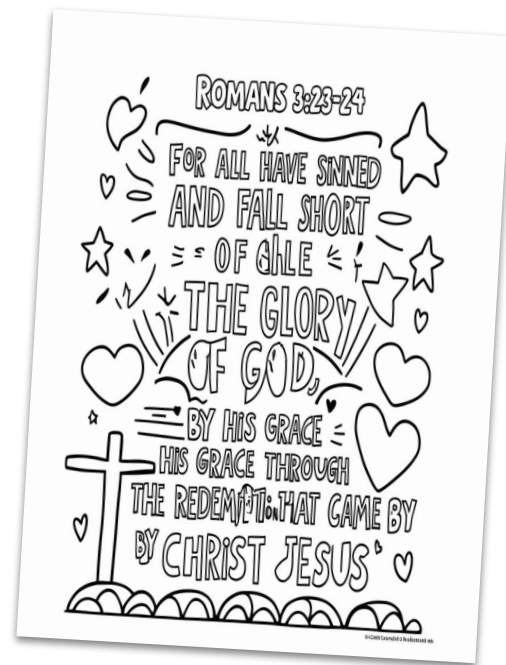 ROMANS 3:23-24
FOR ALL HAVE SINNED
AND FALL SHORT
OF
THE GLORY
OF GOD,
BY HIS GRACE
HIS GRACE THROUGH
THE THAT CAME BY
BY CHRIST JESUS